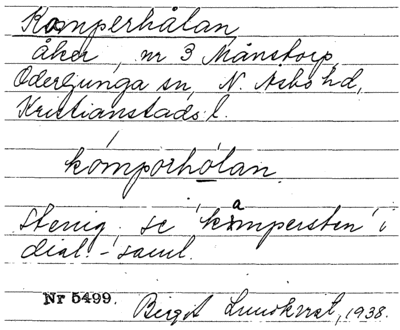 Kamperhålan,
åker, nr 3 Månstorp,
Oderljunga sn, N. Åsbo hd,
Kristianstads l.
kómporhólan.
Stenig, se 'kampersten' i
dial.-saml.
Nr 5499. Birgit 1938.